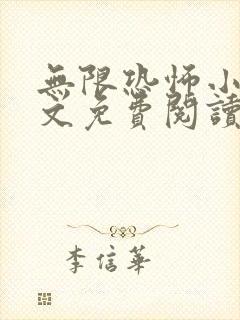 無限恐怖小
文免費閱讀
李信華